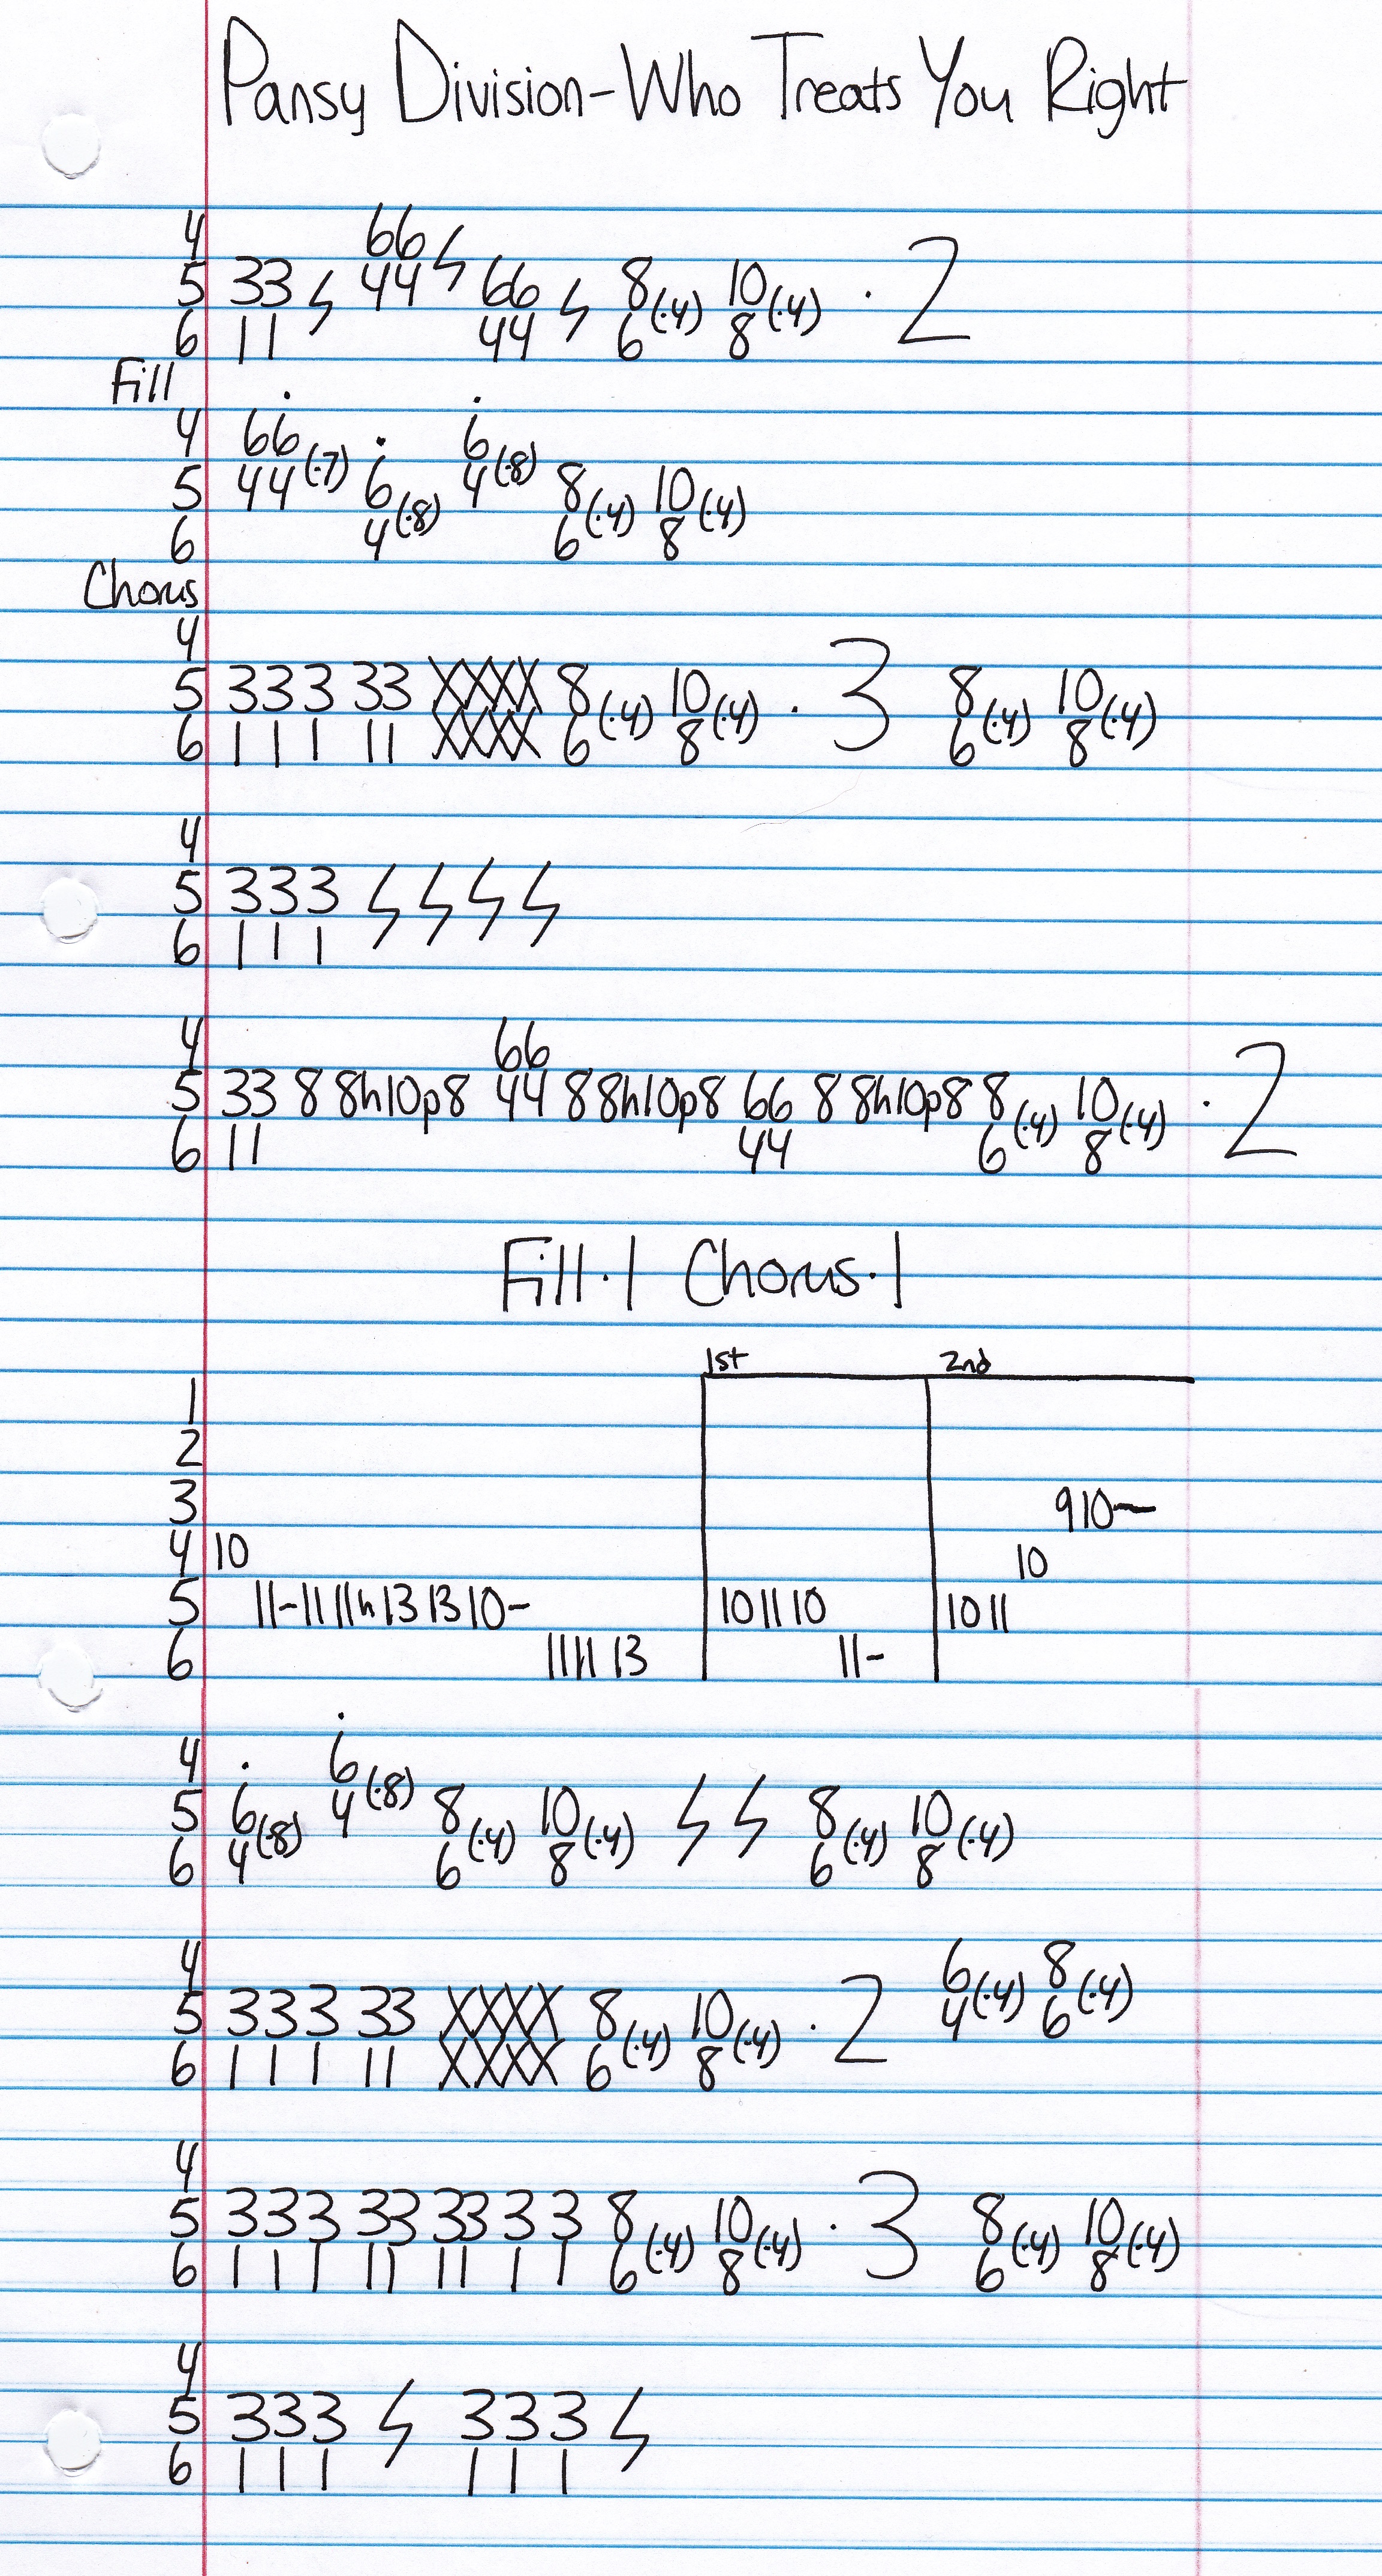 Pansy Division-Who Treats You Right
4 66 ϟ
5 33 ϟ 44 66 ϟ 8(·4) 10(·4) · 2
6 11 44 6 8
Fill
4 66 6
5 44(·7) 6 4(·8) 8 10
6 4(·8) 6(·4) 8(·4)
Chorus
4
5 333 33 XXXX 8(·4) 10(·4) · 3 8(·4) 10(·4)
6 111 11 XXXX 6 8 6 8
4
5 333 ϟ ϟ ϟ ϟ
6 111
4 66
5 33 8 8h10p8 44 8 8h10p8 66 8 8h10p8 8(·4) 10(·4) · 2
6 11 44 6 8
Fill·1 Chorus·1
1st 2nd
1
2
3 910—
4 10 10
5 11-11 11h13 13 10- 10 11 10 10 11
6 11 11 13 11-
4 6
5 6 4(·8) 8 10 ϟ ϟ 8 10
6 4(·8) 6(·4) 8(·4) 6(·4) 8(·4)
4 6 8
5 333 33 XXXX 8(·4) 10(·4) · 2 4(·4) 6(·4)
6 111 11 XXXX 6 8
4
5 333 33 33 3 3 8(·4) 10(·4) · 3 8(·4) 10(·4)
6 111 11 11 1 1 6 8 6 8
4
5 333 ϟ 333 ϟ
6 111 111